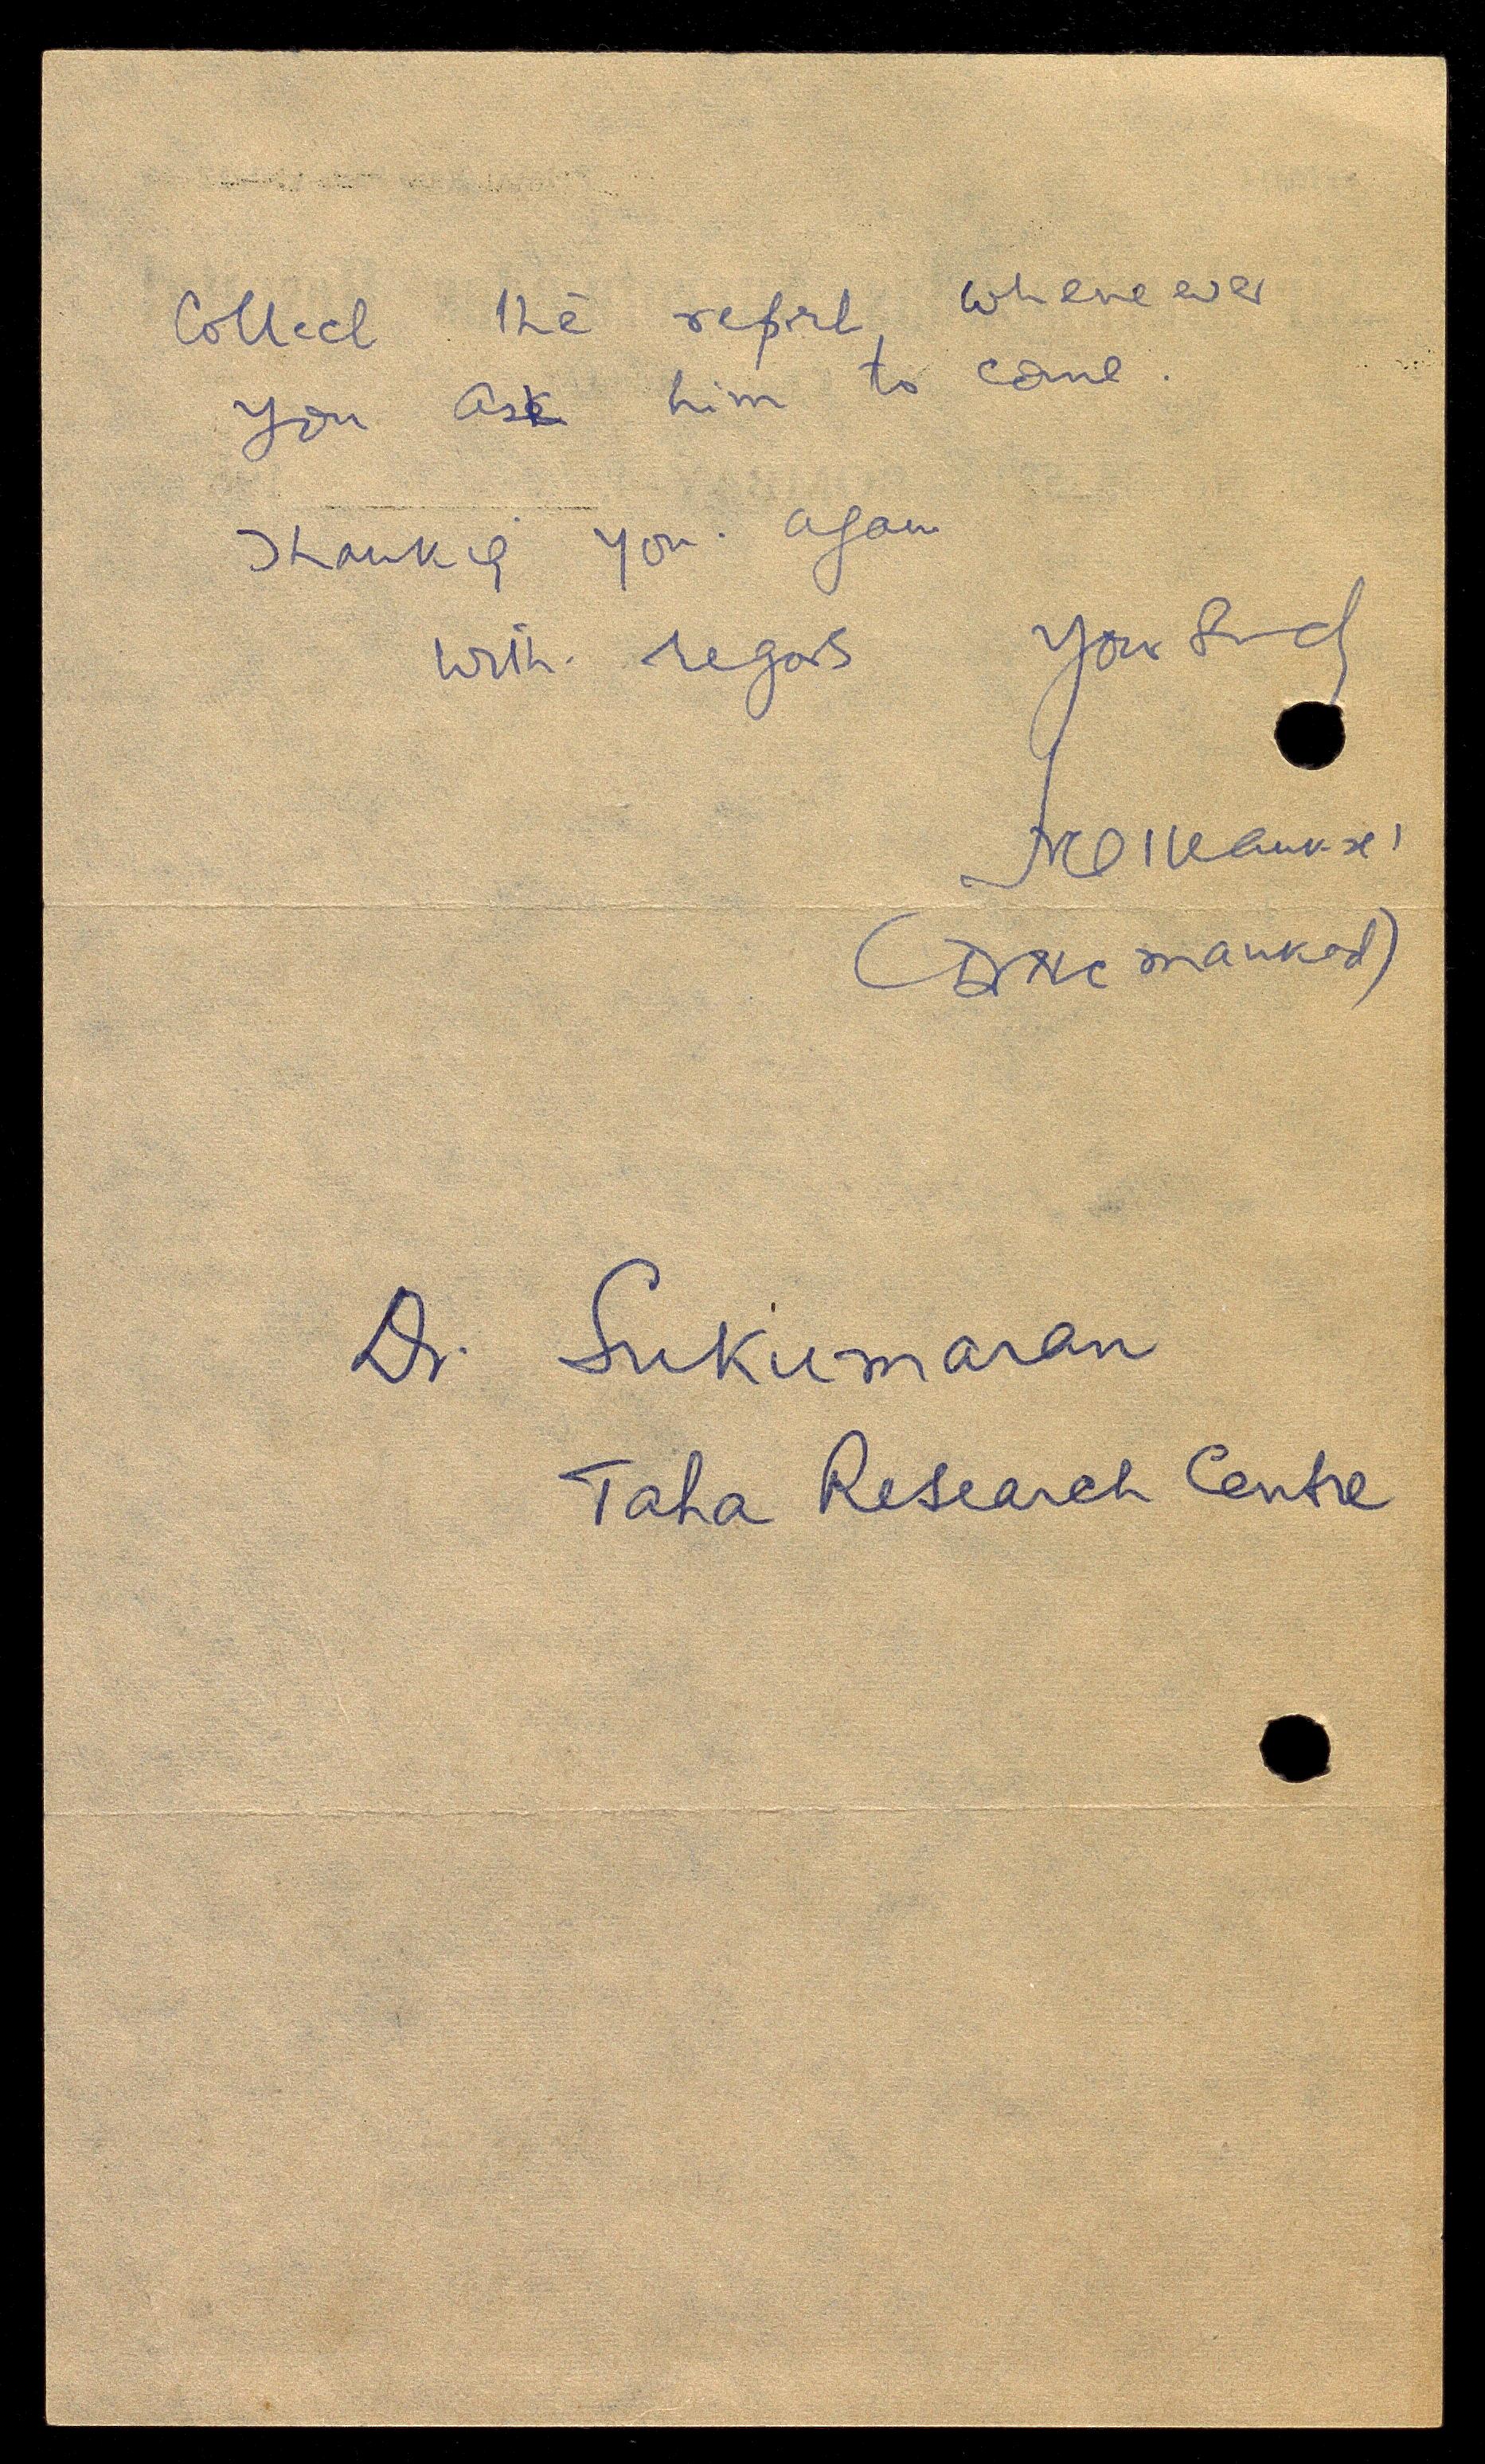 Collect the report, wheneever
you ask him to come.
Thanking you. again
with. regards
Yours
(Dr NC mankad)
Dr. Sukumaran
Taha Research Centre